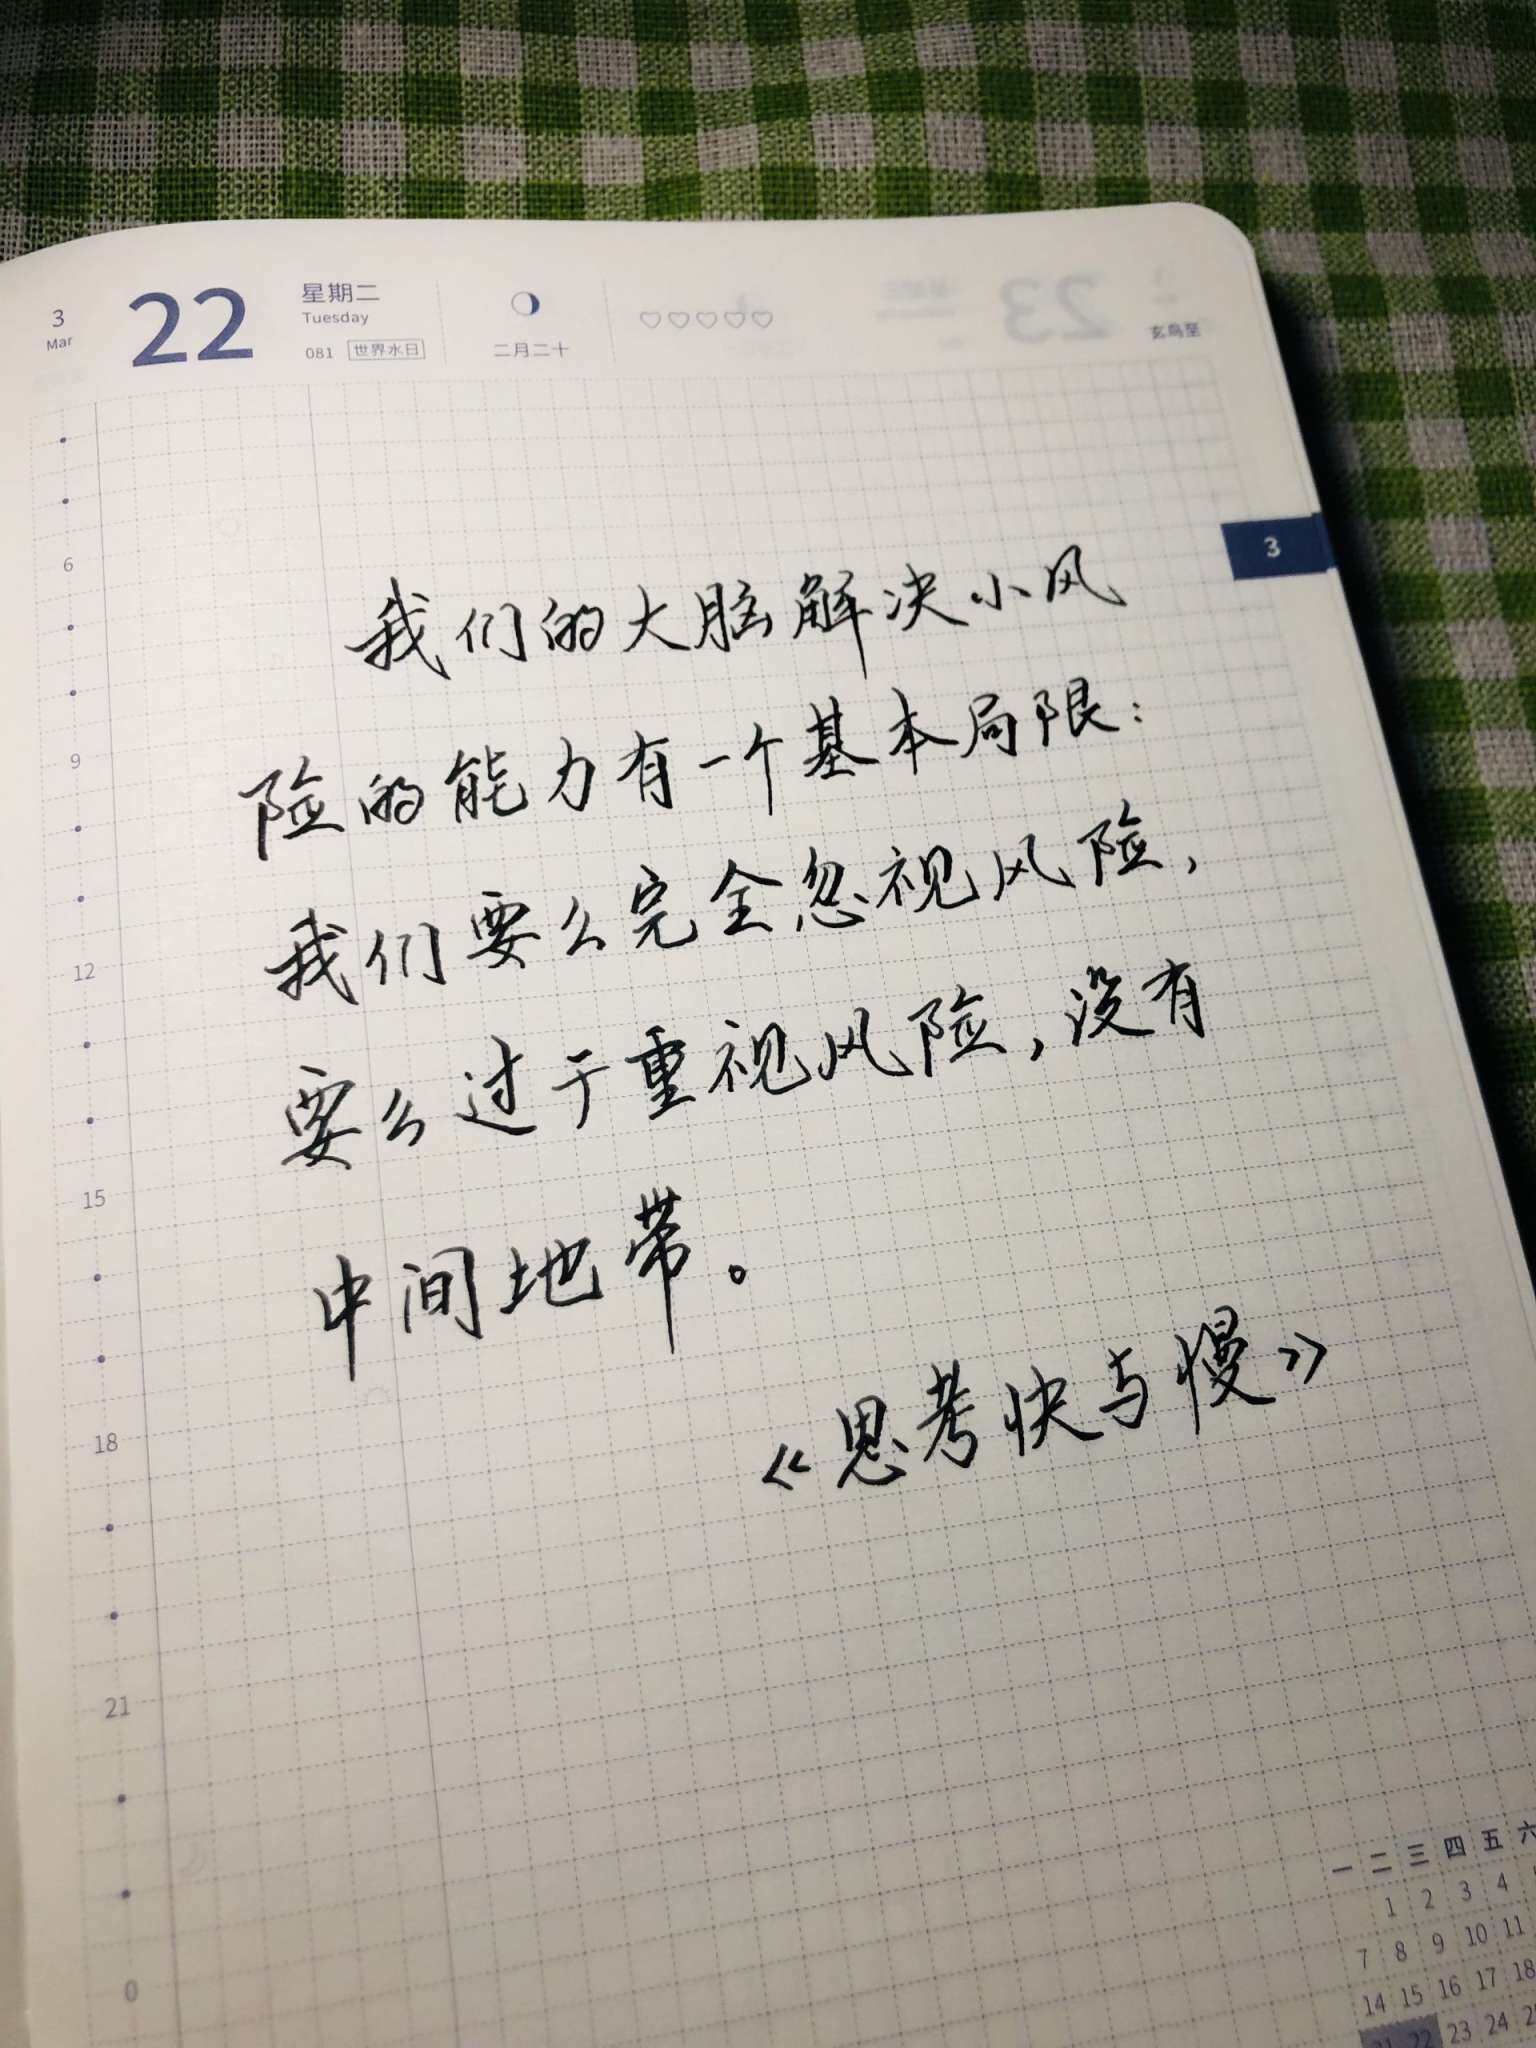 3
Mar
22
星期二
Tuesday
081 世界水日
二月二十
23
玄鸟至
3
我们的大脑解决小风
险的能力有一个基本局限：
我们要么完全忽视风险，
要么过于重视风险，没有
中间地带。
《思考快与慢》
6
9
12
15
18
21
0
一 二 三 四 五 六
1 2 3 4
7 8 9 10 11
14 15 16 17 18
21 22 23 24